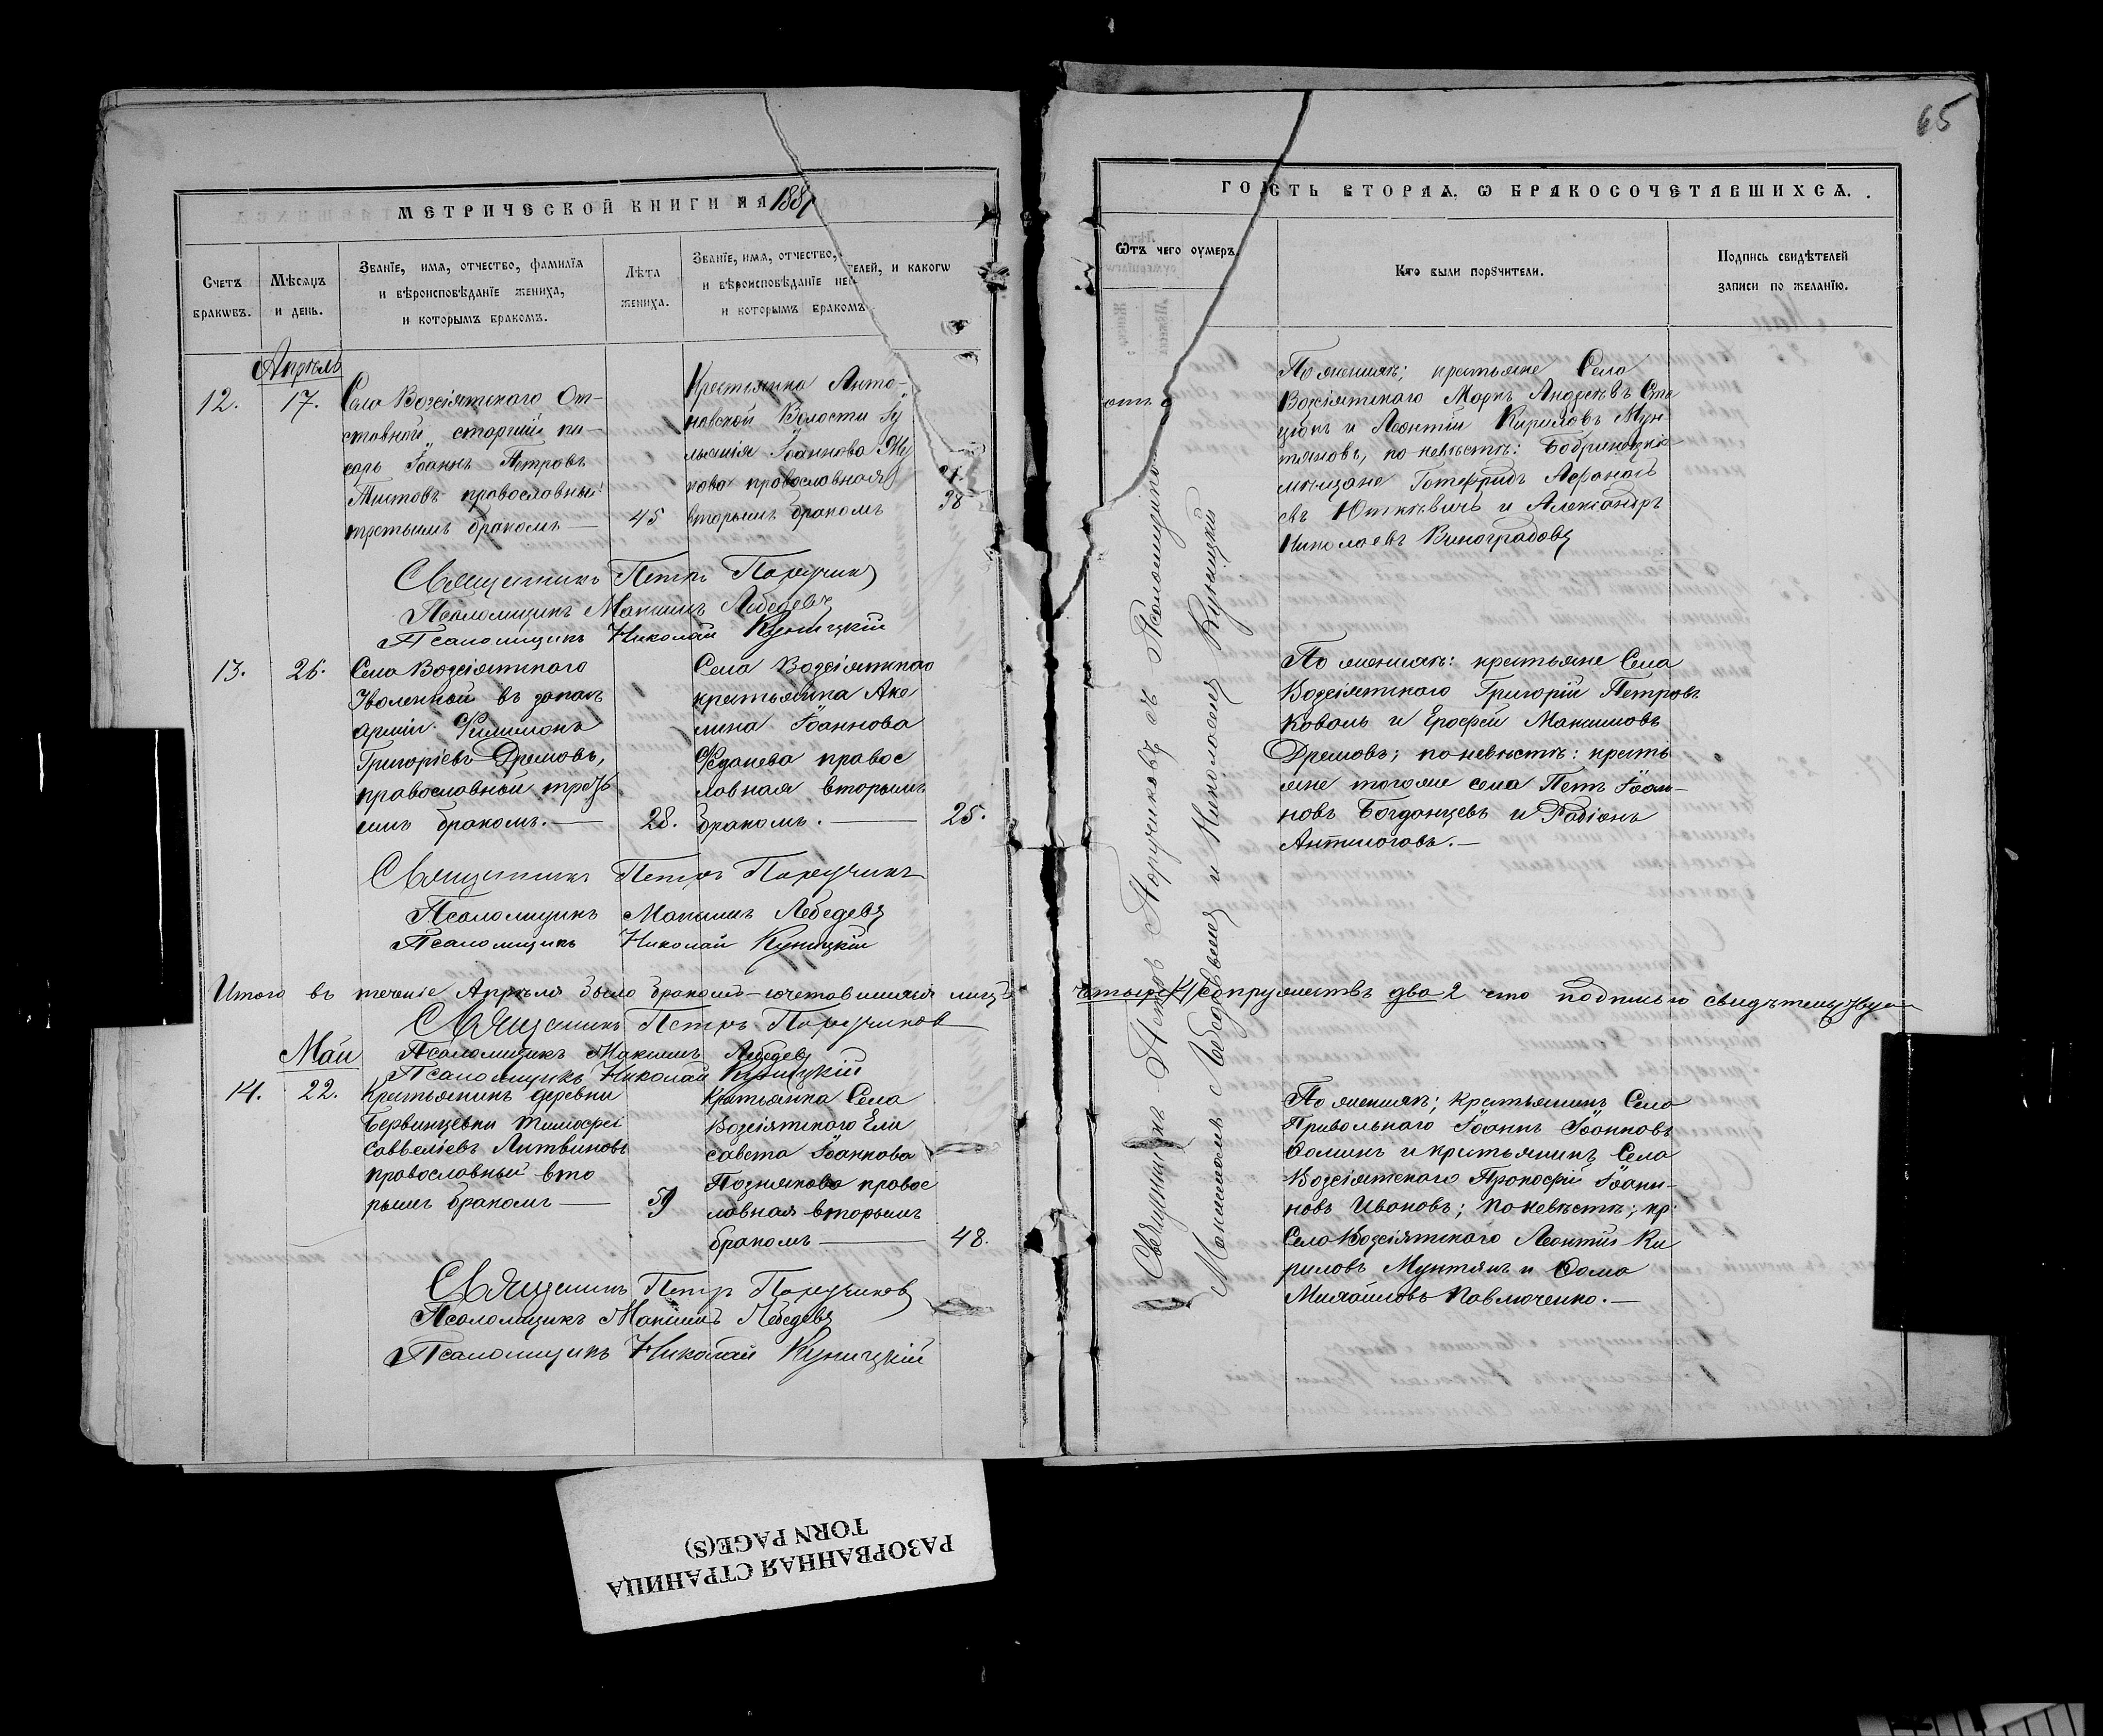 65
МЕТРИЧЕСКОЙ КНИГИ НА 1887
ГО
СТЬ ВТОРАЯ, Ѡ БРАКОСОЧЕТАВШИХСѦ.
Счетъ браковъ.
Мѣсяцъ и день.
Званіе, имя, отчество, фамилія
и вѣроисповѣданіе жениха,
и которымъ бракомъ.
Лѣта
жениха.
Званіе, имя, отчество,
и вѣроисповѣданіе
и которымъ бракомъ
телей, и какогѡ
Ѿтъ чего оумеръ.
Кто были порꙋчители.
Подпись свидѣтелей
записи по желанію.
Апрѣль
12. 17.
Села Возсіятского От-
ставной старшій пи-
сарь Іоаннъ Петровъ
православный
третьимъ бракомъ —
45
Крестьянка Анто-
новской Волости
Іоаннова
православная
вторымъ бракомъ
38
По женихѣ; крестьяне Села
Возсіятского Маркъ Андреевъ
и Леонтій Кириловъ Мун
тяновъ, по невѣстѣ: Бобринецкіе
мѣщане Готефридъ Афанась
евъ Юткевичъ и Александръ
Николаевъ Виноградовъ
Священникъ Петръ Поручиковъ
Псаломщикъ Максимъ Лебедевъ
Псаломщикъ Николай Куницкій
13. 26.
Села Возсіятского
Уволенной въ запасъ
арміи Филимонъ
Григоріевъ Дремовъ,
православный треть
имъ бракомъ. —
28.
Села Возсіятского
крестьянка Аке
лина Іоаннова
правос
лавная вторымъ
бракомъ. —
25.
По женихѣ: крестьяне Села
Возсіятского Григорій Петровъ
Коваль и Ерофей Максимовъ
Дремовъ; по невѣстѣ: крестья
яне тогоже села Петъ Іоан-
новъ Богданцевъ и Радіонъ
Антилоговъ. —
Священникъ Петръ Поручиковъ
Псаломщикъ Максимъ Лебедевъ
Псаломщикъ Николай Куницкій
Итого въ теченіе Апрѣля было бракомъ-сочетавшихся лицъ
четыре 4, супружествъ два 2 что подписью свидѣтельствуемъ
Священникъ Петръ Поручиковъ
Псаломщикъ Максимъ Лебедевъ
Псаломщикъ Николай Куницкій
Май
14. 22.
Крестьянинъ деревни
Бервинцевки Тимофей
Савельевъ Литвиновъ
православный вто
рымъ бракомъ —
59
Крестьянка Села
Возсіятского Ели
савета Іоаннова
Познякова правос
лавная вторымъ
бракомъ —
48.
По женихѣ; крестьянинъ Села
Привольнаго Іоаннъ Іоанновъ
Ѳоминъ и крестьянинъ Села
Возсіятского Прокофій Іоанн-
новъ Ивановъ; по невѣстѣ; кр:
Села Возсіятского Леонтій Ки
риловъ Мунтянъ и Ѳома
Михайловъ Павлюченко. —
Священикъ Петръ Поручиковъ
Псаломщикъ Максимъ Лебедевъ
Псаломщикъ Николай Куницкій
Священникъ Петръ Поручиковъ съ Псаломщиками
Максимомъ Лебедевымъ и Николаемъ Куницкимъ
РАЗОРВАННАЯ СТРАНИЦА
TORN PAGE(S)